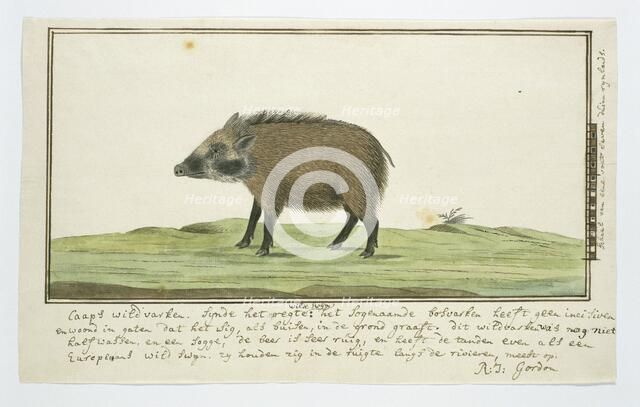 wilde swijn
Caaps wild varken. Sijnde het regte: het sogenaamde bosvarken heeft geen incisiven
en woond in gaten dat het sig, als buiten, in de grond graaft. dit wildvarken was nog niet
half wassen, en een sogge, de beer is seer ruig, en heeft de tanden even als een
Europeaans wild swyn. zy houden zig in de ruigte langs de rivieren, meest op.
R: J: Gordon
Schaal van een voet seven duim rynlands.
Heritage
Heritage
Heritage
Heritage
Heritage
Heritage
C